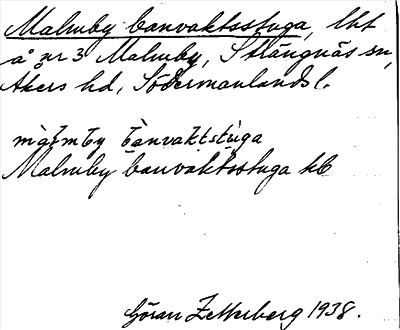 Malmby banvaktsstuga, lht
å nr 3 Malmby, Strängnäs sn,
Åkers hd, Södermanlands l.
màlmby bànvaktstùga
Malmby banvaktsstuga kb
Göran Zetterberg 1938.